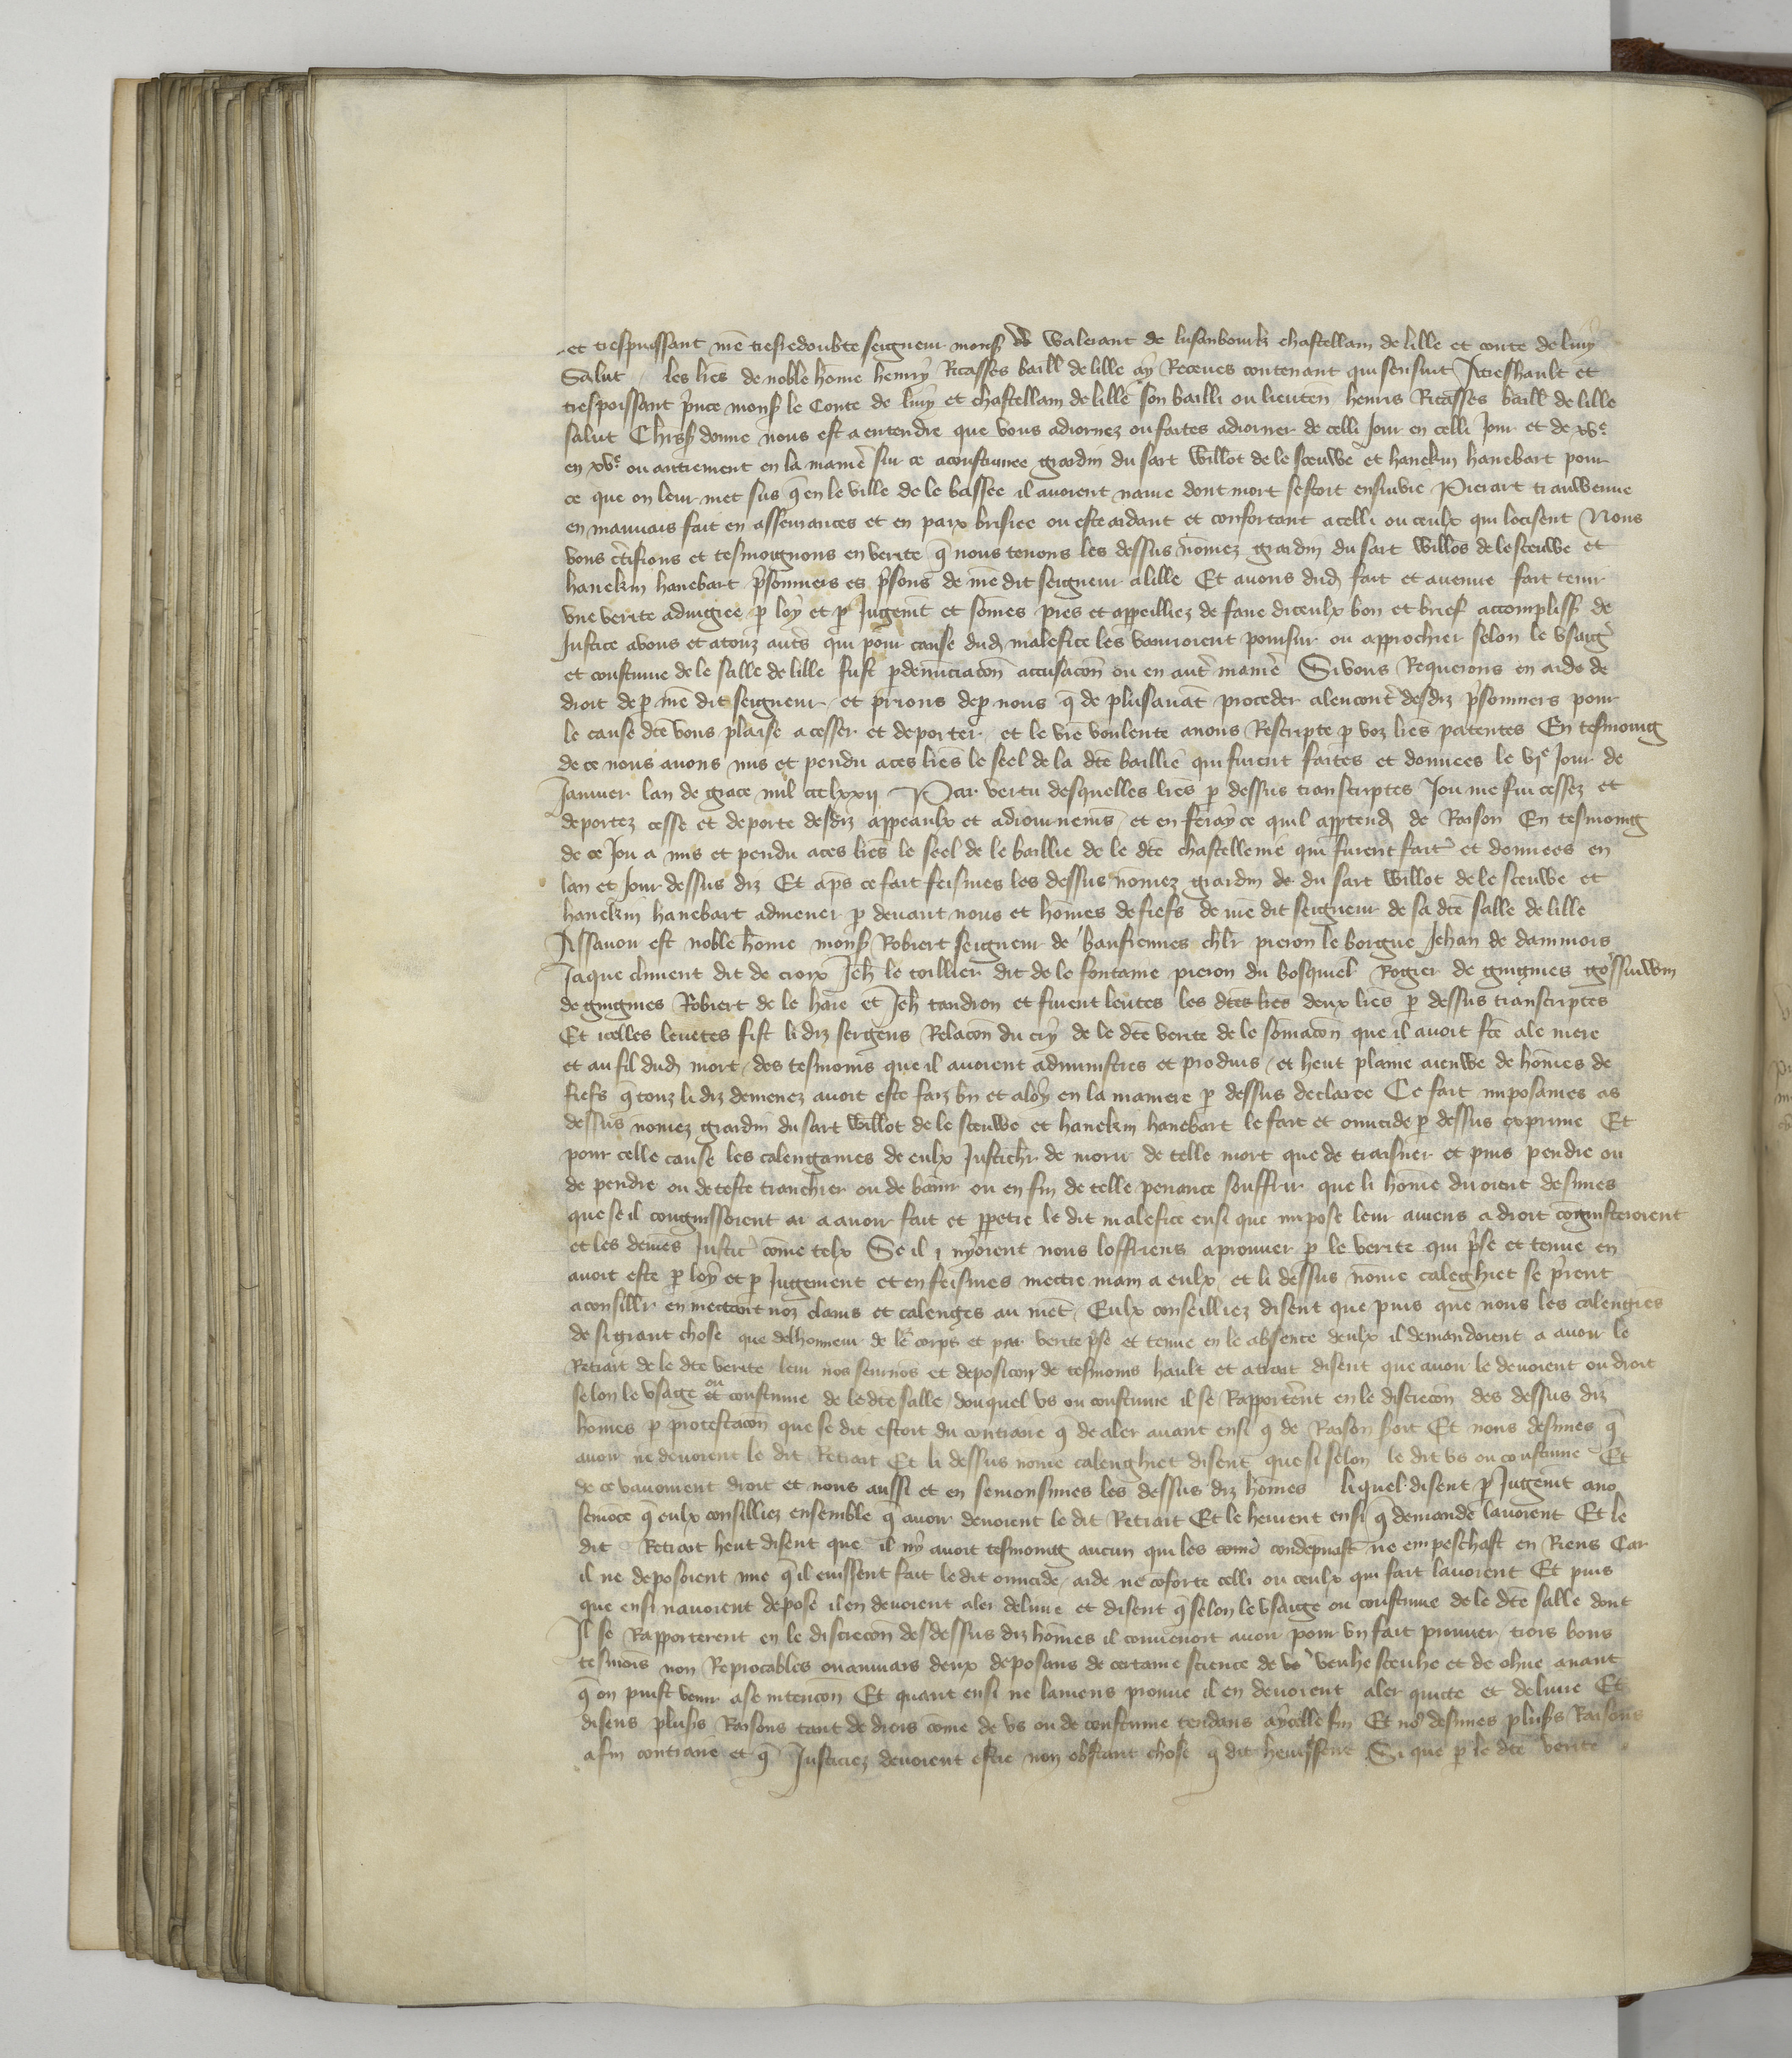 et trespuissant mē tresredoubte seigneur monss de walerant de lusanbourk chastellain de lille et conte de liny
Salut les lrēs de noble hōme henry Ricasses baill de lille ay Receues contenant qui sensuit A treshault et
trespoissant pīnce monss le Conte de liny et chastellain de lille son bailli ou lieuten henris Ricasses baill de lille
salut Chirss donne nous est a entendre que vous adiornez ou faites adiorner de celli Jour en celli Jour et de xve
en xve ou autrement en la maniē sur ce acoustumee grardin du sart willot de le sceuwe et hanekin hanebart pour
ce que on leur met sus q̄ en le ville de le bassee il auoient naure dont mort sestoit ensuivie Pierart trauwenne
en mauuais fait en asseurances et en paix brisiee ou este aidant et confortant a celli ou ceulx qui locisent Nous
vous c̄tifions et tesmoignons en verite q̄ nous tenons les dessus nōmez grardin du sart willos de le sceuwe et
hanekin hanebart pīsonniers es pīsons de mē dit seigneur a lille Et auons dud fait et auenue fait tenir
vne verite adiugiee p loy et p Jugemt et sōmes pres et appeilliez de faire diceulx bon et brief accompliss de
Justice a vous et a touz aut̄s qui pour cause dud malefice les vauroient poursuir ou approchier selon le vsaige
et coustume de le salle de lille fust p denunciacōn accusacōn ou en aut̄ maniē Si vous Requerons en aide de
droit de p mē dit seigneur et prions de p nous q̄ de plus auāt proceder alencont̄ desdiz pīsonniers pour
le cause dcē vous plaise a cesser et deporter et le vrē voulente auons Rescripte p voz lrēs patentes En tesmoing
de ce nous auons mis et pendu a ces lrēs le seel de la dcē baillie qui furent faites et donnees le vje Jour de
Januier lan de grace mil ccclxxij Par vertu desquelles lrēs p dessus transcriptes Jou me sui cessez et
deportez cesse et deporte desdiz appeaulx et adiournemēs et en feray ce quil apptend de Raison En tesmoing
de ce Jou a mis et pendu a ces lrēs le seel de le baillie de le dcē chastellenie qui furent fait̄ et donnees en
lan et Jour dessus diz Et ap̄s ce fait feismes les dessus nōmez grardin de du sart willot de le sceuwe et
hanekin hanebart admener p deuant nous et hōmes de fiefs de mē dit seigneur de sa dcē salle de lille
Assauoir est noble hōme monss Robiert seigneur de baufremes chlr pieron le borgne Jehan de dammois
Jaque climent dit de croix Jeh le toillier dit de le fontaine pieron du bosquiel Rogier de guignies gossuwin
de guignies Robiert de le haie et Jeh tandron et furent leutes les dcēs lrēs deux lrēs p dessus transcriptes
Et icelles leuetes fist li diz sergens Relacōn du cry de le dcē verite de le sōmacōn que il auoit fcē a le mere
et au fil dud mort des tesmoins que il auoient administres et produis et heut plaine aieuwe de hōmes de
fiefs q̄ touz li diz demenez auoit este faiz bn et a loy en la maniere p dessus declaree Ce fait imposames as
dessus nōmez grardin du sart willot de le sceuwe et hanekin hanebart le fait et omicide p dessus exprime Et
pour celle cause les calengames de eulx Justichr de morir de telle mort que de traisner et puis pendre ou
de pendre ou de teste tranchier ou de banir ou en fin de telle penance souffrir que li hōme diroient desimes
que se il congnissoient a auoir fait et ppetre le dit malefice ensi que impose leur auiens a droit congnisteroient
et les deuiēs Justic̄ cōme telx Se il y nyoient nous loffriens a prouuer p le verite qui pīse et tenue en
auoit este p loy et p Jugement et en feismes mectre main a eulx et li dessus nōme caleghiet se pīrent
a consillr en mectant noz clains et calenges au nient Eulx conseilliez disent que puis que nous les calengies
de si grant chose que delhonneur de le corps et par verite pīse et tenue en le absence deulx il demandoient a auoir le
Retrait de le dcē verite leur nos seurnos et deposicon de tesmoins hault et a trait disent que auoir le deuoient ou droit
selon le vsage ou et coustume de le dcē salle douquel vs ou coustume il se Rapportērt en le discrecōn des dessus diz
hōmes p protestacōn que se dit estoit du contraire q̄ de aler auant ensi q̄ de Raison soit Et nous desimes q̄
auoir ne deuoient le dit Retrait Et li dessus nōme calenghiet disent que si selon le dit vs ou coustume Et
de ce vauoient droit et nous aussi et en semonsimes les dessus diz hōmes liquel disent p Jugemt a no
semōce q̄ eulx consilliez ensemble q̄ auoir deuoient le dit Retrait Et le heurent ensi q̄ demande lauoient Et le
dit Retrait heut disent que il ny auoit tesmoing aucun qui les condepnast ne empeschast en Riens Car
il ne deposoient mie q̄ il euissent fait le dit omicide aide ne cōforte celli ou ceulx qui fait lauoient Et puis
que ensi nauoient depose il en deuoient aler deliure et disent q̄ selon le vsaige ou coustume de le dcē salle dont
Il se Rapporterent en le discrecōn des dessus diz hōmes il conuenoit auoir pour vn fait prouuer trois bons
tesmoīs non Reprocables ou au mais deux deposans de certaine science de veuhe sceuhe et de ohue auant
q̄ on puist venir a se intencōn Et quant ensi ne lauiens prouue il en deuoient aler quicte et deliure Et
disens plusss Raisons tant de drois cōme de vs ou de coustume tendans a ycelle fin Et no9 desimes plusss Raisons
a fin contraire et q̄ Justiciez deuoient estre non obstant chose q̄ dit heuyssent Si que p le dcē verite